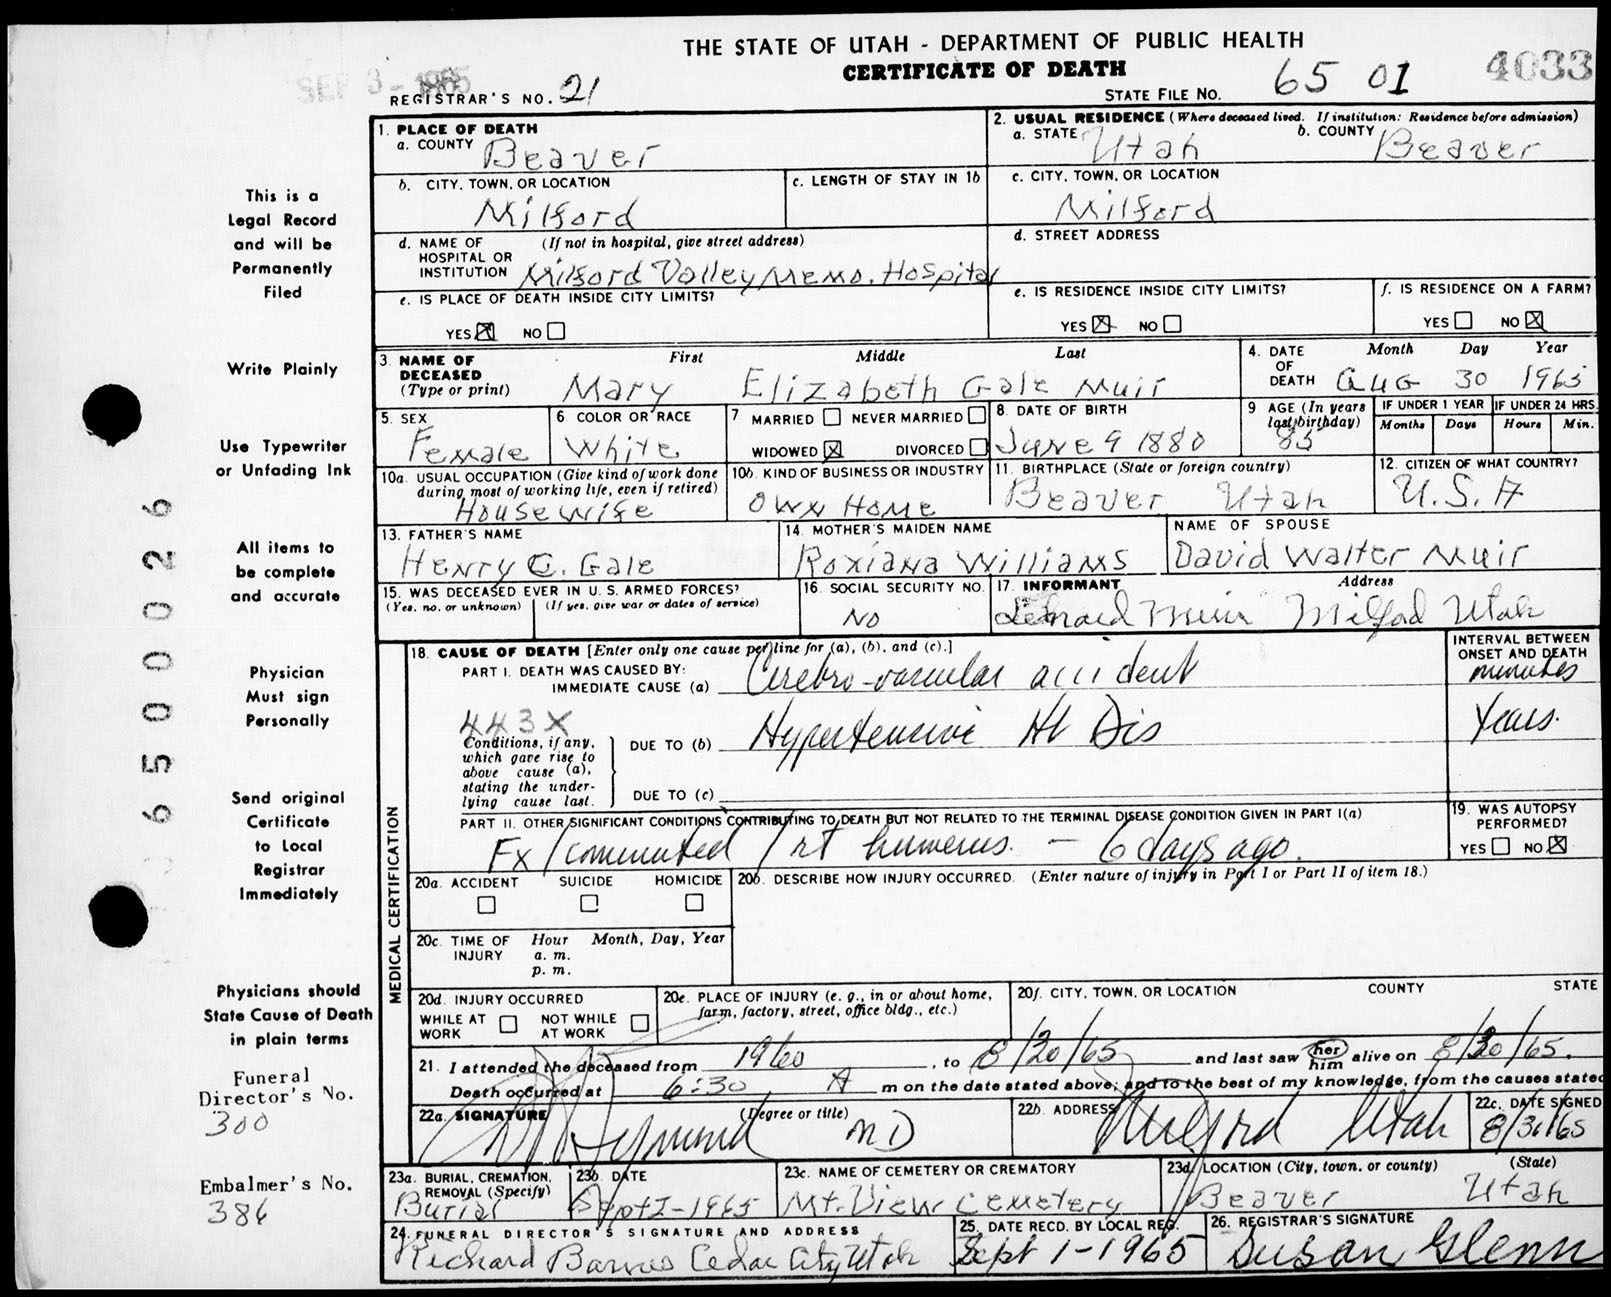 THE STATE OF UTAH - DEPARTMENT OF PUBLIC HEALTH
CERTIFICATE OF DEATH
SEP 3 - 1965
REGISTRAR'S NO. 21
STATE FILE NO. 65 01 4033
1. PLACE OF DEATH
a. COUNTY Beaver
2. USUAL RESIDENCE (Where deceased lived. If institution: Residence before admission)
a. STATE Utah b. COUNTY Beaver
b. CITY, TOWN, OR LOCATION Milford
c. LENGTH OF STAY IN 1b
c. CITY, TOWN, OR LOCATION Milford
d. NAME OF HOSPITAL OR INSTITUTION (If not in hospital, give street address) Milford Valley Memo. Hospital
d. STREET ADDRESS
e. IS PLACE OF DEATH INSIDE CITY LIMITS?
YES ☒ NO ☐
e. IS RESIDENCE INSIDE CITY LIMITS?
YES ☒ NO ☐
f. IS RESIDENCE ON A FARM?
YES ☐ NO ☒
3. NAME OF DECEASED (Type or print) First Middle Last
Mary Elizabeth Gale Muir
4. DATE OF DEATH Month Day Year
Aug 30 1965
5. SEX Female
6 COLOR OR RACE White
7 MARRIED ☐ NEVER MARRIED ☐
WIDOWED ☒ DIVORCED ☐
8. DATE OF BIRTH June 9 1880
9 AGE (In years last birthday) 85
IF UNDER 1 YEAR Months Days
IF UNDER 24 HRS. Hours Min.
10a. USUAL OCCUPATION (Give kind of work done during most of working life, even if retired) Housewife
10b. KIND OF BUSINESS OR INDUSTRY Own Home
11. BIRTHPLACE (State or foreign country) Beaver Utah
12. CITIZEN OF WHAT COUNTRY? U.S.A
13. FATHER'S NAME Henry G. Gale
14. MOTHER'S MAIDEN NAME Roxiana Williams
NAME OF SPOUSE David Walter Muir
15. WAS DECEASED EVER IN U. S. ARMED FORCES?
(Yes, no, or unknown) (If yes, give war or dates of service)
16. SOCIAL SECURITY NO. No
17. INFORMANT Address
Muir Milford Utah
MEDICAL CERTIFICATION
18. CAUSE OF DEATH [Enter only one cause per line for (a), (b), and (c).]
INTERVAL BETWEEN ONSET AND DEATH
PART I. DEATH WAS CAUSED BY:
IMMEDIATE CAUSE (a) Cerebro-vascular accident minutes
443X
Conditions, if any, which gave rise to above cause (a), stating the underlying cause last.
DUE TO (b) Hypertensive Ht Dis Years.
DUE TO (c)
PART II. OTHER SIGNIFICANT CONDITIONS CONTRIBUTING TO DEATH BUT NOT RELATED TO THE TERMINAL DISEASE CONDITION GIVEN IN PART I(a)
Fx / comminuted / rt humerus. - 6 days ago.
19. WAS AUTOPSY PERFORMED?
YES ☐ NO ☒
20a. ACCIDENT SUICIDE HOMICIDE
☐ ☐ ☐
20b. DESCRIBE HOW INJURY OCCURRED. (Enter nature of injury in Part I or Part II of item 18.)
20c. TIME OF INJURY Hour Month, Day, Year
a. m.
p. m.
20d. INJURY OCCURRED
WHILE AT WORK ☐ NOT WHILE AT WORK ☐
20e. PLACE OF INJURY (e. g., in or about home, farm, factory, street, office bldg., etc.)
20f. CITY, TOWN, OR LOCATION COUNTY STATE
21. I attended the deceased from 1960, to 8/30/65 and last saw her him alive on 8/30/65.
Death occurred at 6:30 A m on the date stated above; and to the best of my knowledge, from the causes stated
22a. SIGNATURE (Degree or title) MD
22b. ADDRESS Milford Utah
22c. DATE SIGNED 8/31/65
23a. BURIAL, CREMATION, REMOVAL (Specify) Burial
23b. DATE Sept 1-1965
23c. NAME OF CEMETERY OR CREMATORY Mt. View Cemetery
23d. LOCATION (City, town, or county) (State) Beaver Utah
24. FUNERAL DIRECTOR'S SIGNATURE AND ADDRESS
Richard Barnes Cedar City Utah
25. DATE RECD. BY LOCAL REG. Sept 1-1965
26. REGISTRAR'S SIGNATURE Susan Glenn
This is a
Legal Record
and will be
Permanently
Filed
Write Plainly
Use Typewriter
or Unfading Ink
All items to
be complete
and accurate
Physician
Must sign
Personally
Send original
Certificate
to Local
Registrar
Immediately
Physicians should
State Cause of Death
in plain terms
Funeral
Director's No.
300
Embalmer's No.
386
6500026